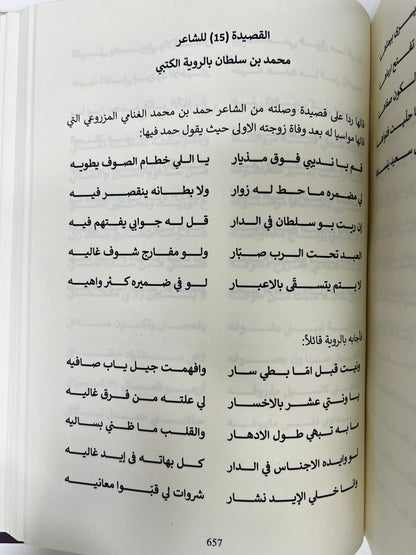 القصيدة (15) للشاعر
محمد بن سلطان بالروية الكتبي
قالها ردا على قصيدة وصلته من الشاعر حمد بن محمد الغنامي المزروعي التي
قالها مواسيا له بعد وفاة زوجته الاولى حيث يقول حمد فيها:
قم يا نديبي فوق مذيار يا اللي خطام الصوف يطويه
لي مضمره ما حط له زوار ولا بطانه ينقصر فيه
إن ريت بو سلطان في الدار قل له جوابي يفتهم فيه
العبد تحت الرب صبّار ولو مفارج شوف غاليه
لا يتم يتسقّى بالاعبار لو في ضميره كثر واهيه
فأجابه بالروية قائلاً:
ونيت قبل امّا بطي سار وافهمت جيل ياب صافيه
يا ونتي عشر بالاخسار لي علته من فرق غاليه
ما به تبهي طول الادهار والقلب ما ظني بساليه
لو وايده الاجناس في الدار كل بهاته في إيد غاليه
وانا خلي الإيد نشار شروات لي قبّوا معانيه
657